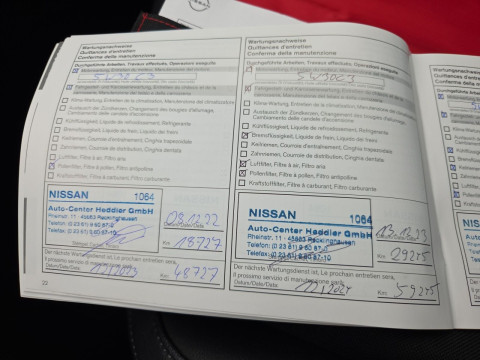 Wartungsnachweise
Quittances d'entretien
Conferma della manutenzione
Durchgeführte Arbeiten, Travaux effectués, Operazioni eseguite
Motorwartung, Entretien du moteur, Manutenzione del motore
5W30C3
Fahrgestell- und Karosseriewartung, Entretien du châssis et de la
carrosserie, Manutenzione del telaio e della carrozzeria
Klima-Wartung, Entretien de la climatisation, Manutenzione del climatizzatore
Austausch der Zündkerzen, Changement des bougies d'allumage,
Cambiamento delle candele d'accensione
Kühlflüssigkeit, Liquide de refroidissement, Refrigerante
Bremsflüssigkeit, Liquide de frein, Liquido freni
Keilriemen, Courroie d'entraînement, Cinghia trapezoidale
Zahnriemen, Courroie de distribution, Cinghia dentata
Luftfilter, Filtre à air, Filtro aria
Pollenfilter, Filtre à pollen, Filtro antipolline
Kraftstofffilter, Filtre à carburant, Filtro carburante
NISSAN 1064
Auto-Center Heddier GmbH
Rheinstr. 11 - 45663 Recklinghausen
Telefon: (0 23 61) 9 60 87-0
Telefax: (0 23 61) 9 60 87-10
09.12.22
Km 18727
Der nächste Wartungsdienst ist, Le prochain entretien sera,
Il prossimo servizio di manutenzione sarà,
Datum/Date/Data 12/2023 Km 48727
22
Wartungsnachweise
Quittances d'entretien
Conferma della manutenzione
Durchgeführte Arbeiten, Travaux effectués, Operazioni eseguite
Motorwartung, Entretien du moteur, Manutenzione del motore
5W30C3
Fahrgestell- und Karosseriewartung, Entretien du châssis et de la
carrosserie, Manutenzione del telaio e della carrozzeria
Klima-Wartung, Entretien de la climatisation, Manutenzione del climatizzatore
Austausch der Zündkerzen, Changement des bougies d'allumage,
Cambiamento delle candele d'accensione
Kühlflüssigkeit, Liquide de refroidissement, Refrigerante
Bremsflüssigkeit, Liquide de frein, Liquido freni
Keilriemen, Courroie d'entraînement, Cinghia trapezoidale
Zahnriemen, Courroie de distribution, Cinghia dentata
Luftfilter, Filtre à air, Filtro aria
Pollenfilter, Filtre à pollen, Filtro antipolline
Kraftstofffilter, Filtre à carburant, Filtro carburante
NISSAN 1064
Auto-Center Heddier GmbH
Rheinstr. 11 - 45663 Recklinghausen
Telefon: (0 23 61) 9 60 87-0
Telefax: (0 23 61) 9 60 87-10
13.12.23
Km 29215
Der nächste Wartungsdienst ist, Le prochain entretien sera,
Il prossimo servizio di manutenzione sarà,
Datum/Date/Data 12/2024 Km 59215